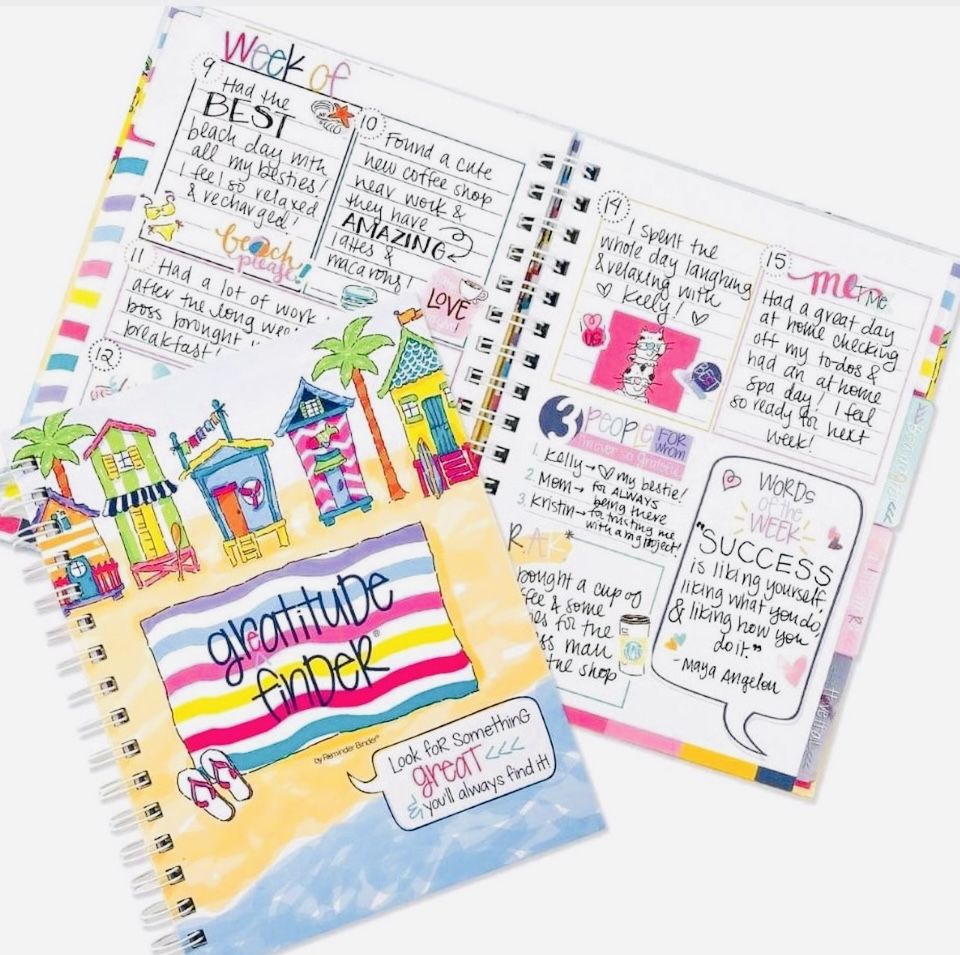 Week of
9
Had the
BEST
beach day with
all my besties!
I feel so relaxed
& recharged!
beach
please!
10
Found a cute
new coffee shop
near work &
they have
AMAZING
lattes &
macarons!
LOVE
11
Had a lot of work
after the long wee
boss brought
breakfast!
12
14
I spent the
whole day laughing
& relaxing with
♡ Kelly! ♡
15
me TIME
Had a great day
at home checking
off my to-dos &
had an at home
spa day! I feel
so ready for next
week!
3 PEOPLE FOR WHOM
I'm ever so grateful
1. Kelly → ♡ my bestie!
2. Mom → for ALWAYS
being there
3. Kristin → for trusting me
with a mg project!
R.A.K*
bought a cup of
ffee & some
es for the
ss man
the shop
WORDS
of the
WEEK
"SUCCESS
is liking yourself,
liking what you do,
& liking how you
do it."
- Maya Angelou
gratitude
finder®
by Reminder Binder®
Look for something
great <<<
& you'll always find it!